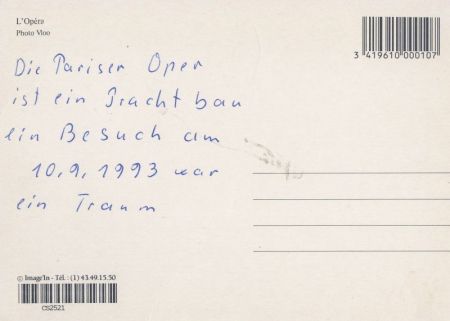 L'Opéra
Photo Vloo
3 419610 000107
Die Pariser Oper
ist ein Prachtbau
ein Besuch am
10.9.1993 war
ein Traum
© Image'In - Tél. : (1) 43.49.15.50
CS2521